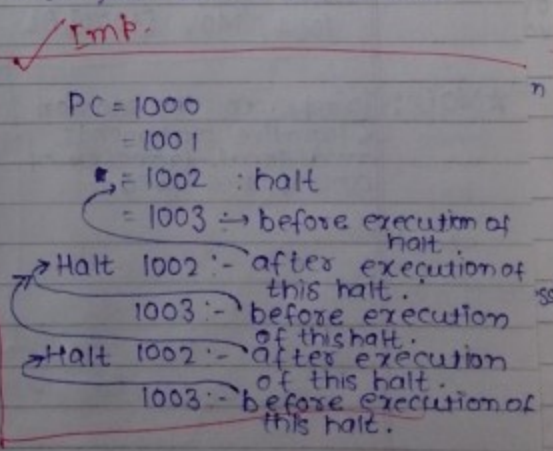 Imp.
PC = 1000
= 1001
= 1002 : halt
= 1003 :→ before execution of
halt
Halt 1002 :- after execution of
this halt.
1003 :- before execution
of this halt.
Halt 1002 :- after execution
of this halt.
1003 :- before execution of
this halt.